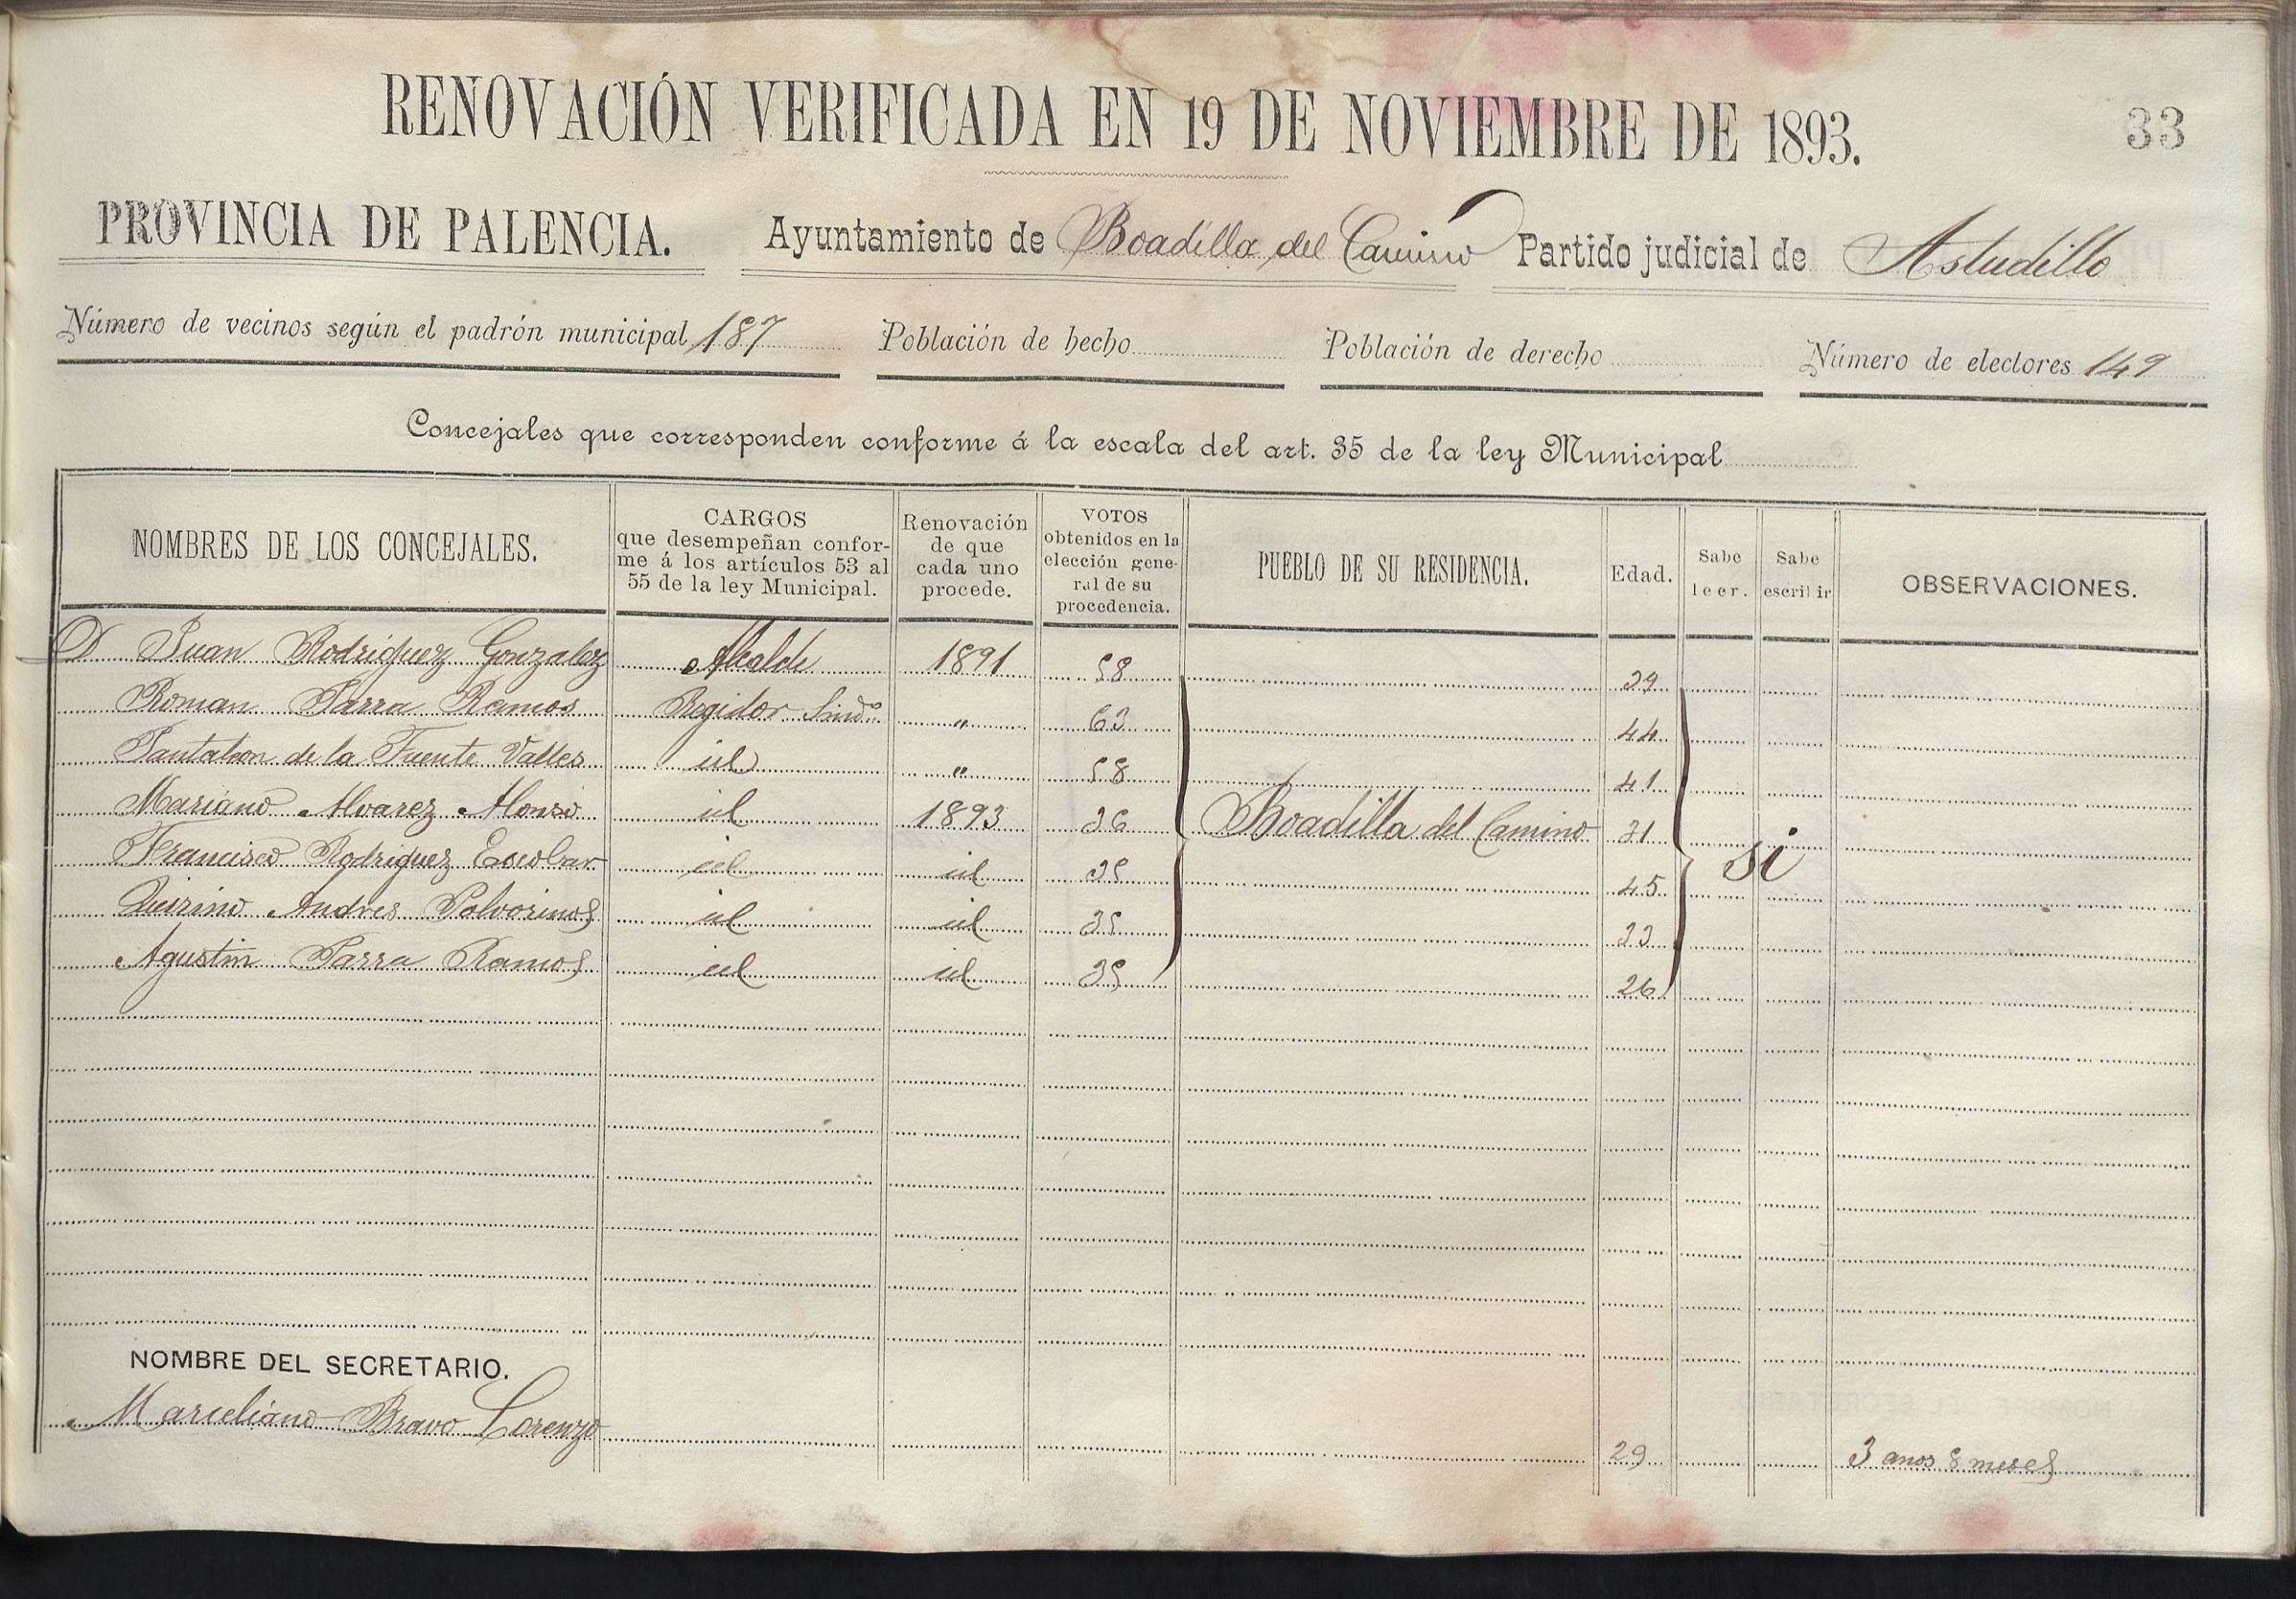 RENOVACIÓN VERIFICADA EN 19 DE NOVIEMBRE DE 1893. 33
PROVINCIA DE PALENCIA. Ayuntamiento de Boadilla del Camino Partido judicial de Astudillo
Número de vecinos según el padrón municipal 187 Población de hecho Población de derecho Número de electores 149
Concejales que corresponden conforme á la escala del art. 35 de la ley Municipal
NOMBRES DE LOS CONCEJALES.
CARGOS
que desempeñan confor-
me á los artículos 53 al
55 de la ley Municipal.
Renovación
de que
cada uno
procede.
VOTOS
obtenidos en la
elección gene-
ral de su
procedencia.
PUEBLO DE SU RESIDENCIA.
Edad.
Sabe
leer.
Sabe
escribir
OBSERVACIONES.
D Juan Rodriguez Gonzalez Alcalde 1891 58 39
Roman Parra Ramos Regidor Sind.º " 63 44
Pantaleon de la Fuente Valles id " 58 41
Mariano Alvarez Alonso id 1893 36 Boadilla del Camino 31 si
Francisco Rodriguez Escobar id id 35 45
Quirino Andres Polvorinos id id 35 33
Agustin Parra Ramos id id 35 26
NOMBRE DEL SECRETARIO.
Marceliano Bravo Lorenzo 29 3 anos 8 meses